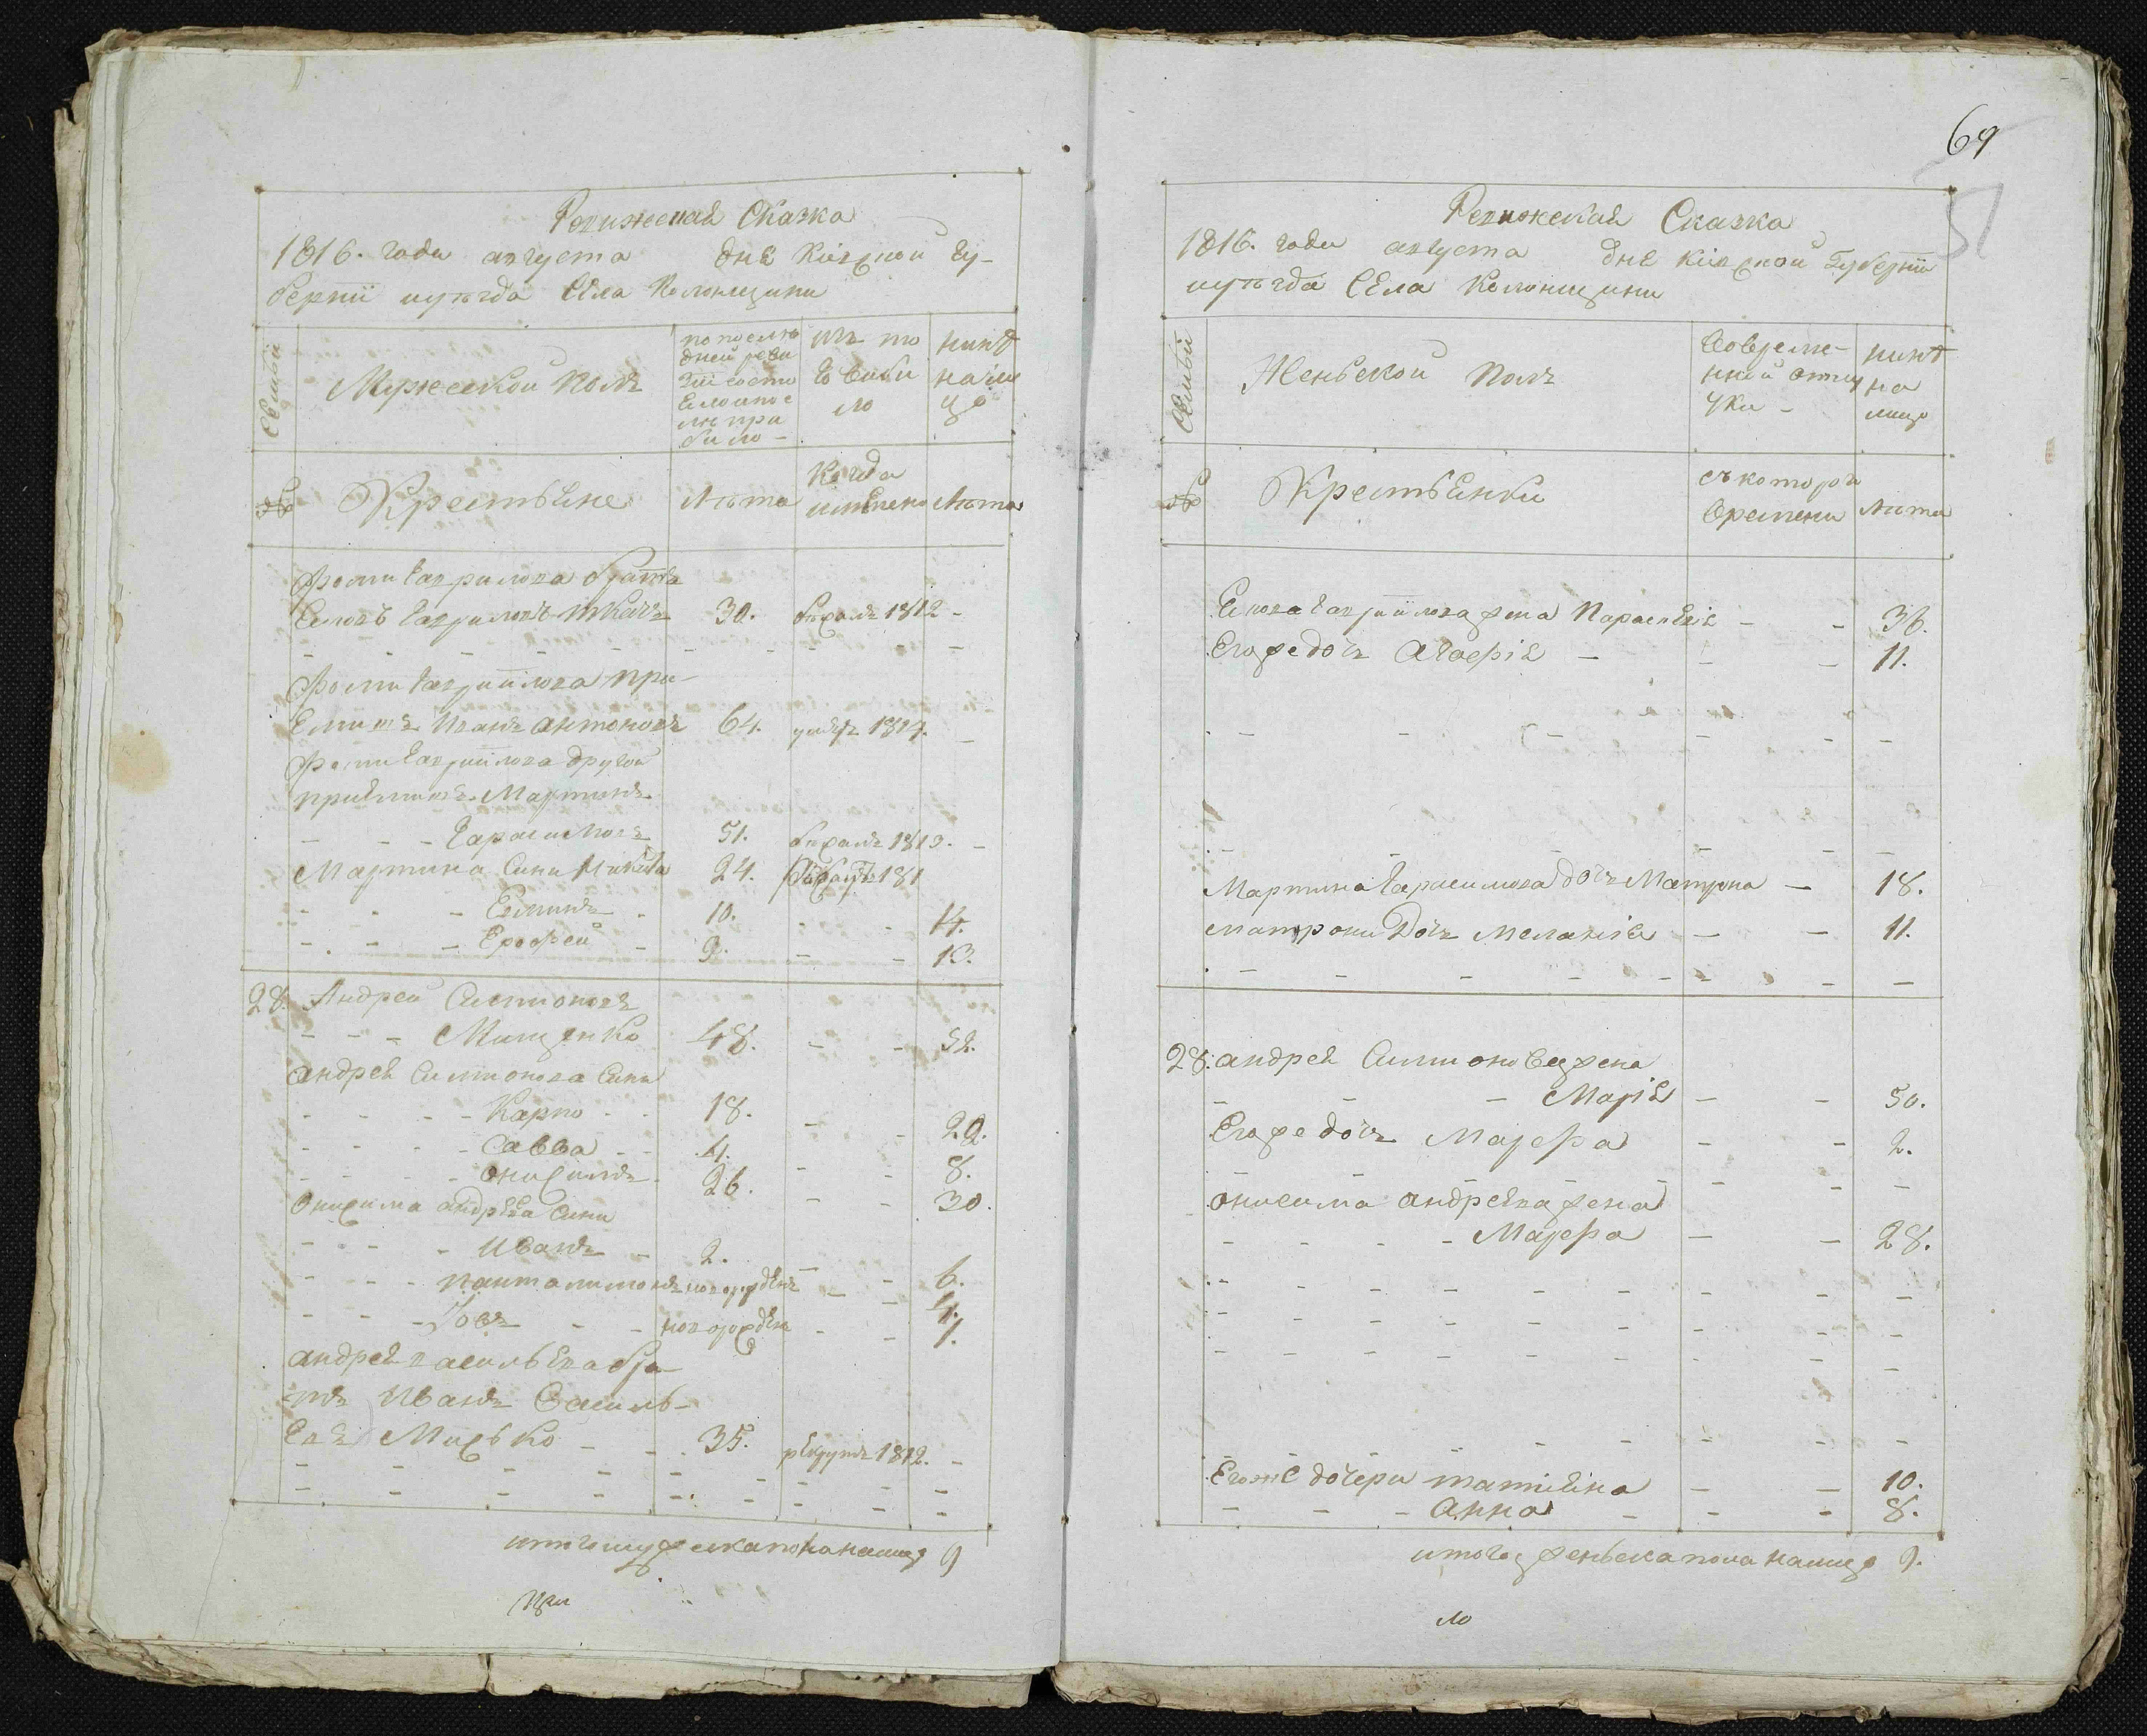 Ревижская Сказка
1816. года августа дня Кіевской Гу-
берніи и уѣзда Села Колонщини
Семьи
Мужескои полъ
по послѣ
дней реви
зіи состо
яло и пос
лѣ при
было
изъ то
го выбы
ло
нинѣ
на ли
цо
№
Крестьяне
Лѣта
Когда
имянно
Лѣта
Фоми Гаврилова братъ
Гавриловъ Ткачъ 30. 1812 -
Фоми Гавриилова при-
емишъ Иванъ Антоновъ 64. умеръ 1814.
Фоми Гавриилова другои
приемишъ Мартинъ
Гарасимовъ 51. 1813.
Мартина Сини Микита 24. 181
- - - 10. - - 14.
- - - Ерофеи - 9. - - 13.
28. Андреи Симоновъ
- - - Мищенко 48. - - 52.
Андрея Симонова Сини
- - - Карпо - - 18. - - 22.
- - - Савва - - 4. - - 8.
- - - Онисимъ 26. - - 30.
Онисима Андреева Сини
- - - Иванъ - 2. - - 6.
- - - Панталимонъ новорожденъ - - 4.
- - - Іовъ - - новорожден - - 1.
Андрея Васильева бра-
тъ Иванъ Василь-
евъ Мисько - - 35. рекрутъ 1812. -
итого мужеска пола на лицо 9
69
51
Ревижская Сказка
1816. года августа дня Кіевской Губерніи
и уѣзда Села Колонщини
Семьи
Женьской полъ
Во време-
нной отлу
чки -
нинѣ
на
лицо
№
Крестьянки
съ которого
времени
Лѣта
Гавриилова жена Параскевія - - 36.
Его же дочь Агафія - - 11.
Мартина Гарасимова дочь Матрона - 18.
Матрони Дочь Меланія - - 11.
28. Андрея Симоновa жена
- - - Марія - - 50.
Его же дочь Марфа - - 2.
Онисима Андреева жена
- - - - Марфа - - 28.
Его же дочери татіяна - - 10.
- - - Анна - - - 8.
итого женьска пола на лицо 9.
ло